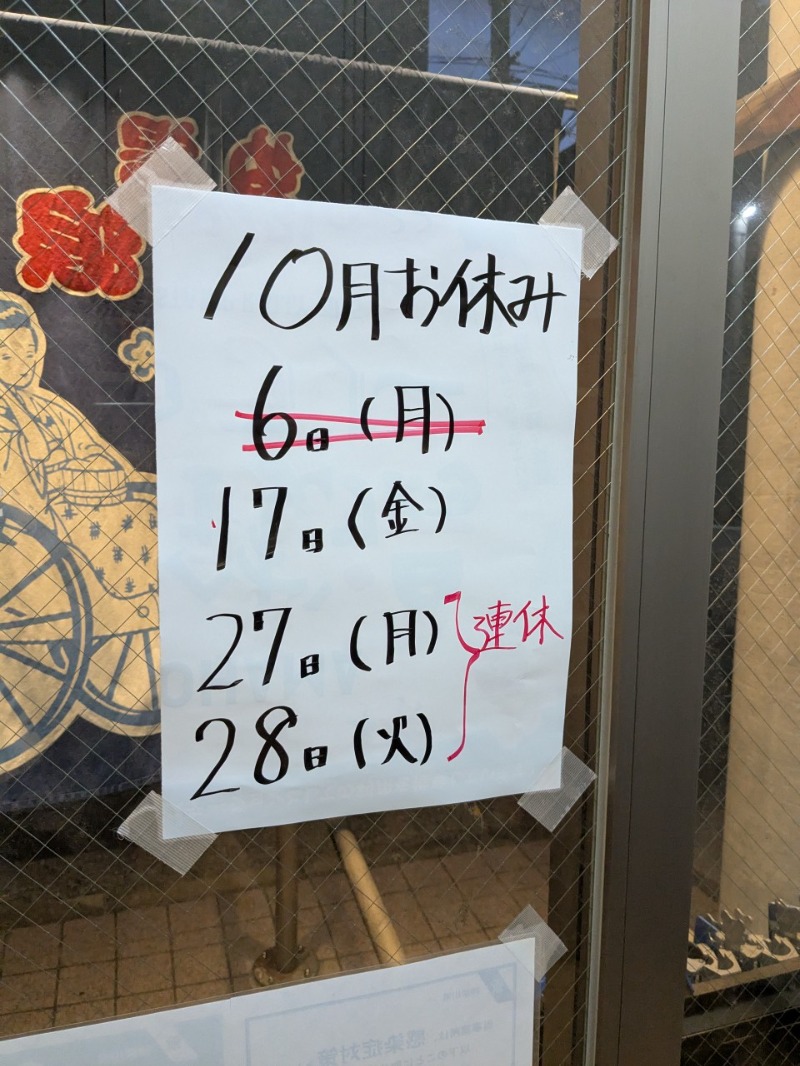 10月お休み
6日(月)
17日(金)
27日(月)
28日(火)
連休
感染症対策